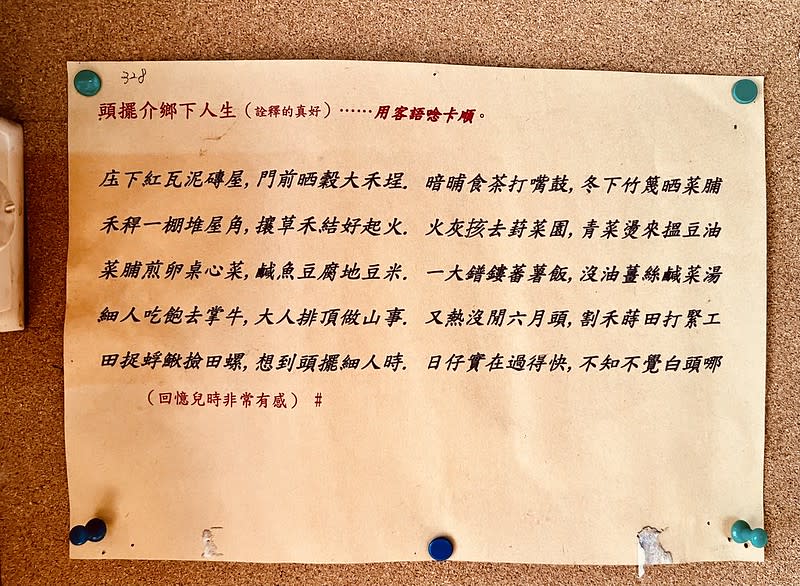 328
頭擺介鄉下人生(詮釋的真好)……用客語唸卡順。
庄下紅瓦泥磚屋,門前晒穀大禾埕. 暗晡食茶打嘴鼓,冬下竹篾晒菜脯
禾稈一棚堆屋角,攘草禾結好起火. 火灰㧡去葑菜園,青菜燙來搵豆油
菜脯煎卵桌心菜,鹹魚豆腐地豆米. 一大鐥鏤蕃薯飯,沒油薑絲鹹菜湯
細人吃飽去掌牛,大人排頂做山事. 又熱沒閒六月頭,割禾蒔田打緊工
田捉蜉鰍撿田螺,想到頭擺細人時. 日仔實在過得快,不知不覺白頭哪
(回憶兒時非常有感) #